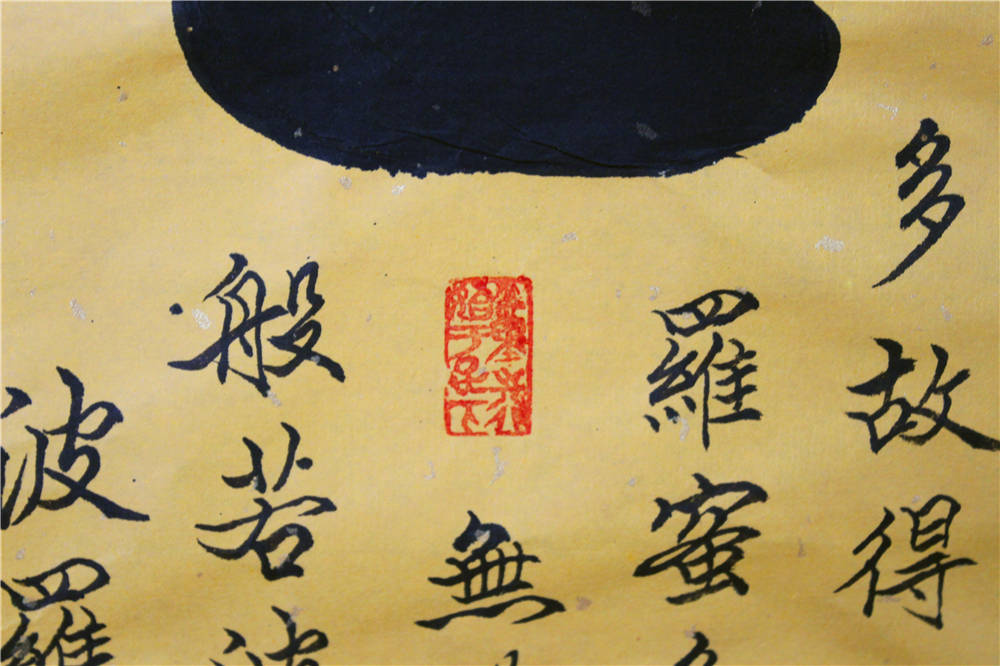 多故得
羅蜜多
無
般若波
波羅